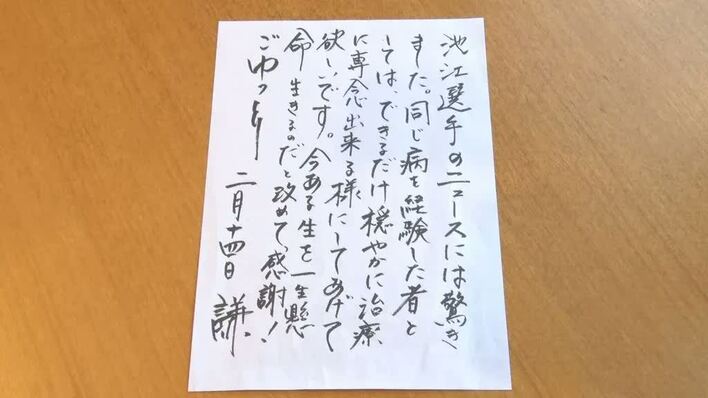 池江選手のニュースには驚き
ました。同じ病を経験した者と
しては、できるだけ穏やかに治療
に専念出来る様にしてあげて
欲しいです。今ある生を一生懸
命生きるのだと改めて、感謝！
ごゆっくり 二月十四日 謙、